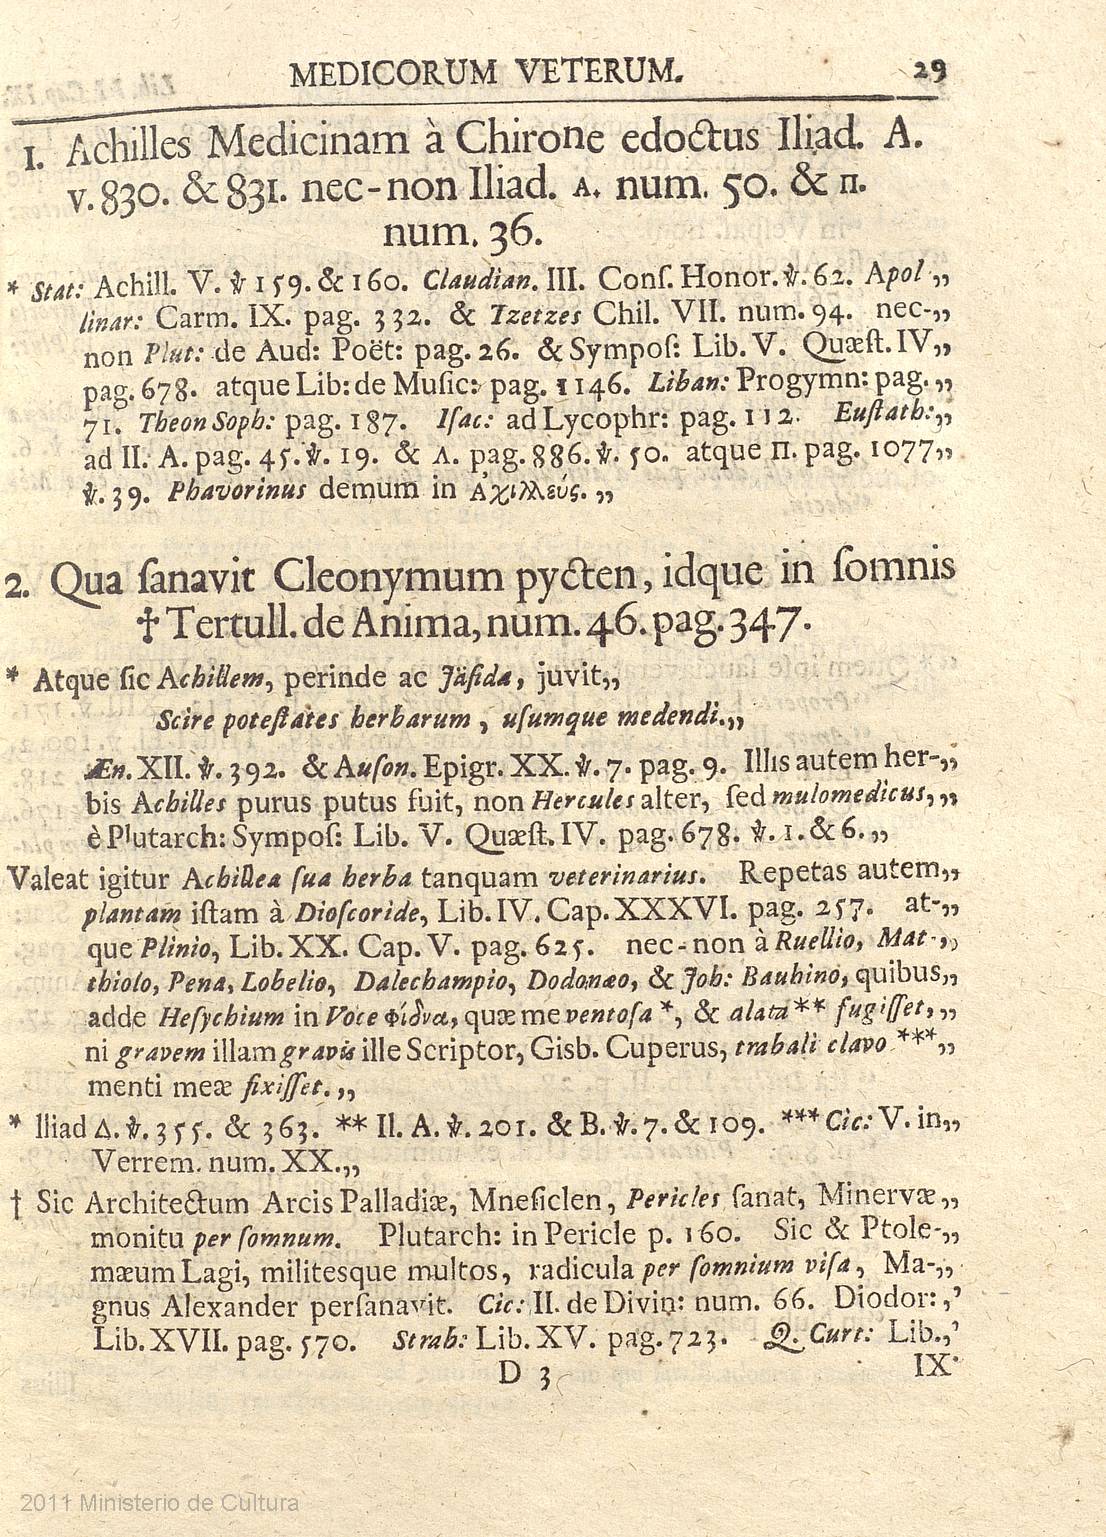 MEDICORUM VETERUM. 29
1. Achilles Medicinam à Chirone edoctus Iliad. A.
v. 830. & 831. nec-non Iliad. Λ. num. 50. & Π.
num. 36.
* Stat: Achill. V. ℣ 159. & 160. Claudian. III. Conſ. Honor. ℣. 62. Apol„
linar: Carm. IX. pag. 332. & Tzetzes Chil. VII. num. 94. nec-„
non Plut: de Aud: Poët: pag. 26. & Sympoſ: Lib. V. Quæſt. IV„
pag. 678. atque Lib: de Muſic: pag. 1146. Liban: Progymn: pag. „
71. Theon Soph: pag. 187. Iſac: ad Lycophr: pag. 112. Euſtath:„
ad Il. A. pag. 45. ℣. 19. & Λ. pag. 886. ℣. 50. atque Π. pag. 1077„
℣. 39. Phavorinus demum in Ἀχιλλεύς. „
2. Qua ſanavit Cleonymum pycten, idque in ſomnis
† Tertull. de Anima, num. 46. pag. 347.
* Atque ſic Achillem, perinde ac Jäſida, juvit„
Scire poteſtates herbarum, uſumque medendi.„
Æn. XII. ℣. 392. & Auſon. Epigr. XX. ℣. 7. pag. 9. Illis autem her-„
bis Achilles purus putus fuit, non Hercules alter, ſed mulomedicus, „
è Plutarch: Sympoſ: Lib. V. Quæſt. IV. pag. 678. ℣. 1. & 6. „
Valeat igitur Achillea ſua herba tanquam veterinarius. Repetas autem„
plantam iſtam à Dioſcoride, Lib. IV. Cap. XXXVI. pag. 257. at-„
que Plinio, Lib. XX. Cap. V. pag. 625. nec-non à Ruellio, Mat-„
thiolo, Pena, Lobelio, Dalechampio, Dodonæo, & Joh: Bauhino, quibus„
adde Heſychium in Voce Φίδνα, quæ me ventoſa *, & alata ** fugiſſet, „
ni gravem illam gravis ille Scriptor, Gisb. Cuperus, trabali clavo ***„
menti meæ fixiſſet. „
* Iliad Δ. ℣. 355. & 363. ** Il. A. ℣. 201. & B. ℣. 7. & 109. *** Cic: V. in„
Verrem. num. XX.„
† Sic Architectum Arcis Palladiæ, Mneſiclen, Pericles ſanat, Minervæ„
monitu per ſomnum. Plutarch: in Pericle p. 160. Sic & Ptole-„
mæum Lagi, militesque multos, radicula per ſomnium viſa, Ma-„
gnus Alexander perſanavit. Cic: II. de Divin: num. 66. Diodor: „
Lib. XVII. pag. 570. Strab: Lib. XV. pag. 723. Q. Curt: Lib.„
D 3 IX.
2011 Ministerio de Cultura